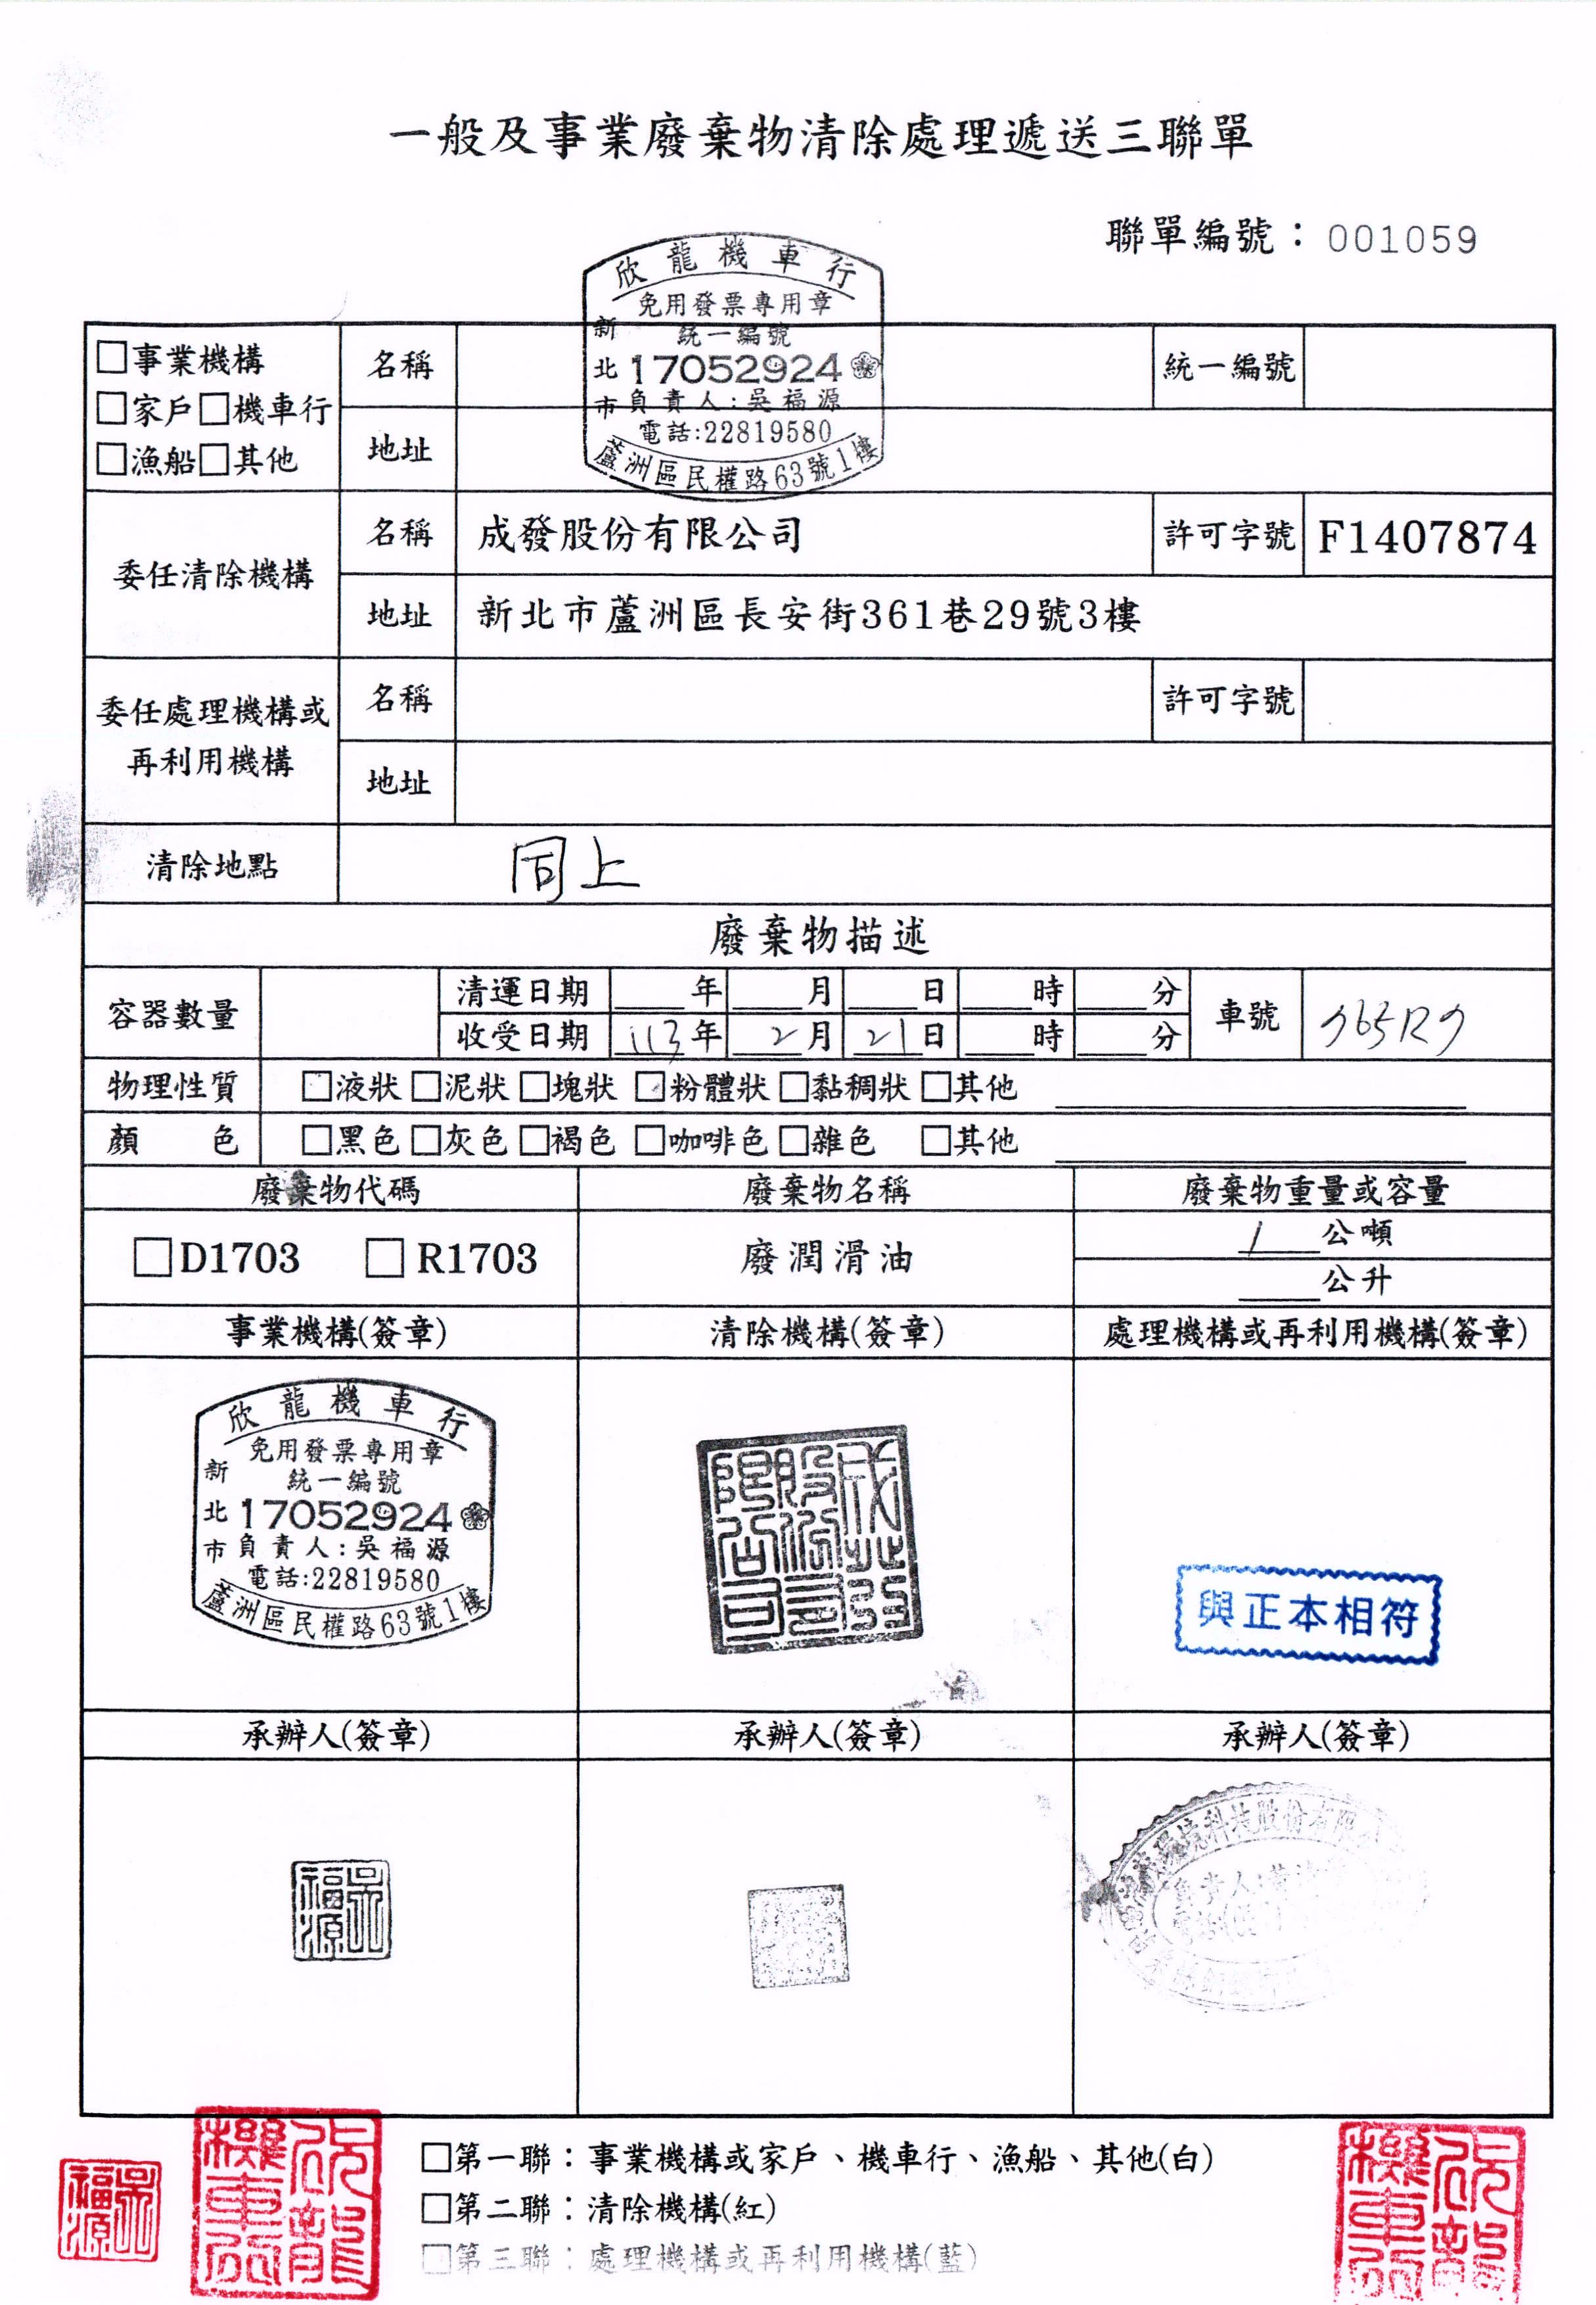 一般及事業廢棄物清除處理遞送三聯單
聯單編號：001059
欣龍機車行
免用發票專用章
統一編號
新北市
17052924
負責人:吳福源
電話:22819580
蘆洲區民權路63號1樓
□事業機構
□家戶□機車行
□漁船□其他
名稱
統一編號
地址
委任清除機構
名稱 成發股份有限公司 許可字號 F1407874
地址 新北市蘆洲區長安街361巷29號3樓
委任處理機構或
再利用機構
名稱 許可字號
地址
清除地點 同上
廢棄物描述
容器數量
清運日期 年 月 日 時 分
收受日期 113年 2月 21日 時 分
車號
物理性質 □液狀□泥狀□塊狀 □粉體狀□黏稠狀□其他
顏色 □黑色□灰色□褐色 □咖啡色□雜色 □其他
廢棄物代碼 廢棄物名稱 廢棄物重量或容量
□D1703 □R1703 廢潤滑油
1公噸
公升
事業機構(簽章) 清除機構(簽章) 處理機構或再利用機構(簽章)
欣龍機車行
免用發票專用章
統一編號
新北市
17052924
負責人:吳福源
電話:22819580
蘆洲區民權路63號1樓
與正本相符
承辦人(簽章) 承辦人(簽章) 承辦人(簽章)
吳福源
環境科技股份有限
負責人:
吳福源
欣龍機車行
欣龍機車行
□第一聯：事業機構或家戶、機車行、漁船、其他(白)
□第二聯：清除機構(紅)
□第三聯：處理機構或再利用機構(藍)